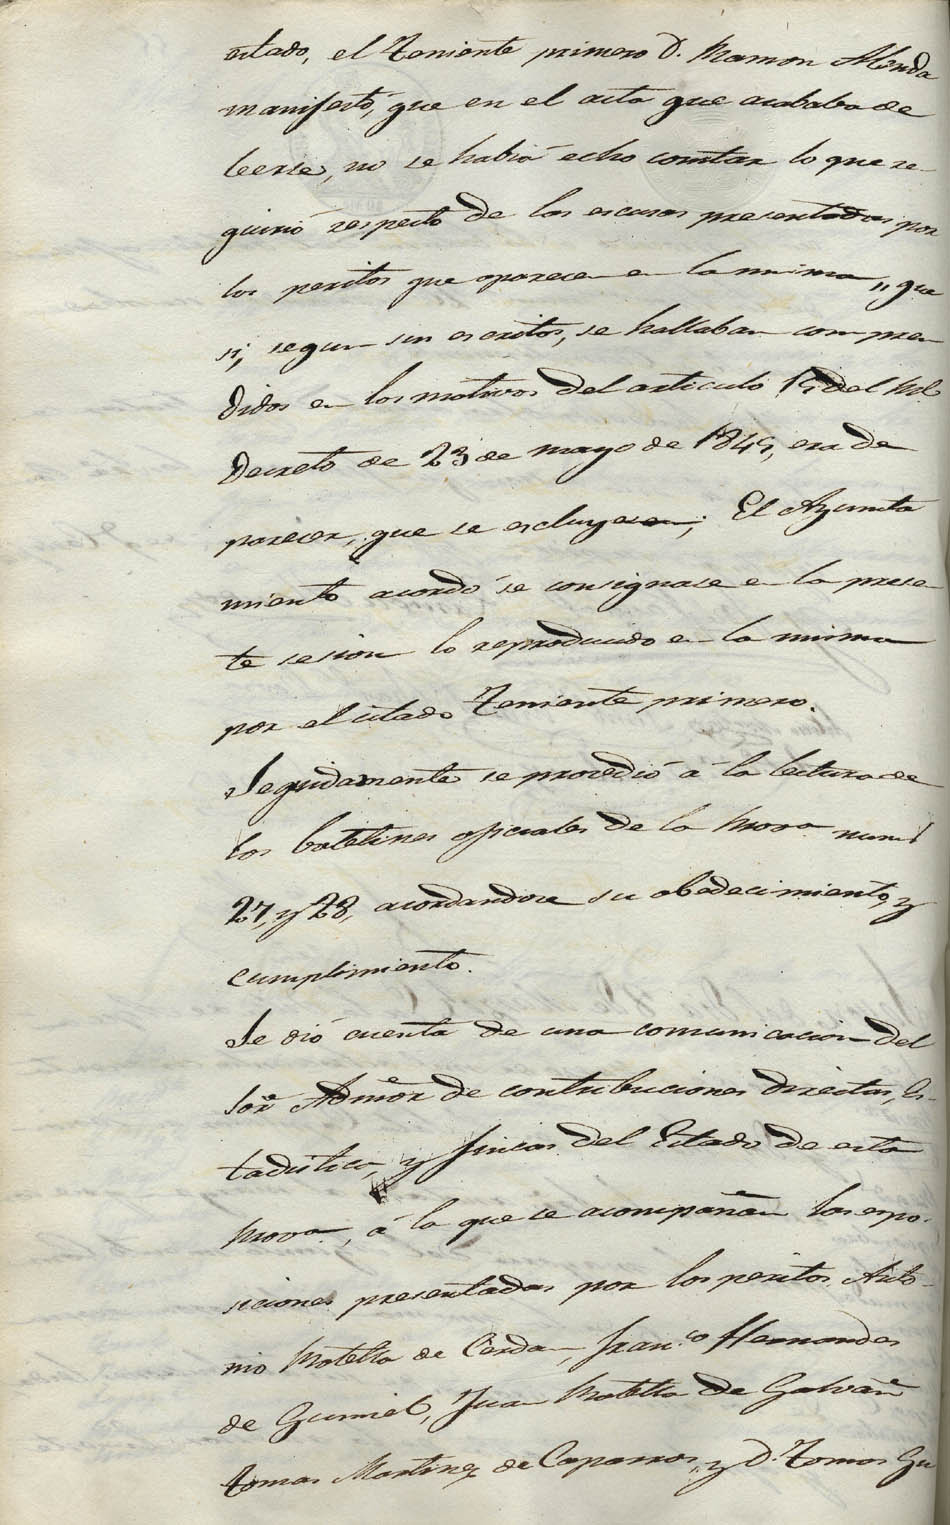 citado, el Teniente primero D. Ramon Merida
manifestó, que en el acta que acababa de
leerse, no se habia echo constar lo que re-
quirió respecto de las escusas presentadas por
los peritos que aparecen en la misma,, que
si, segun sus escritos, se hallaban compren
didos en los motivos del articulo 19 del Rl.
Decreto de 23 de mayo de 1845, era de
parecer, que se escluyesen; El Ayunta
miento acordó se consignase en la presen
te sesion lo reproducido en la misma
por el citado Teniente primero.
Seguidamente se procedió á la lectura de
los boletines oficiales de la Prova. num.
27, y 28, acordandose su obedecimiento, y
cumplimiento.
Se dió cuenta de una comunicacion del
Sor. Admor. de contribuciones directas, Es-
tadistica, y fincas del Estado de esta
Prova., á la que se acompañan las espo-
siciones presentadas por los peritos Anto-
nio Motella de Cerdan, Franco. Hernandes
de Gumiel, Juan Motella de Galvañ
Tomas Martinez de Caparros, y D. Tomas Gu